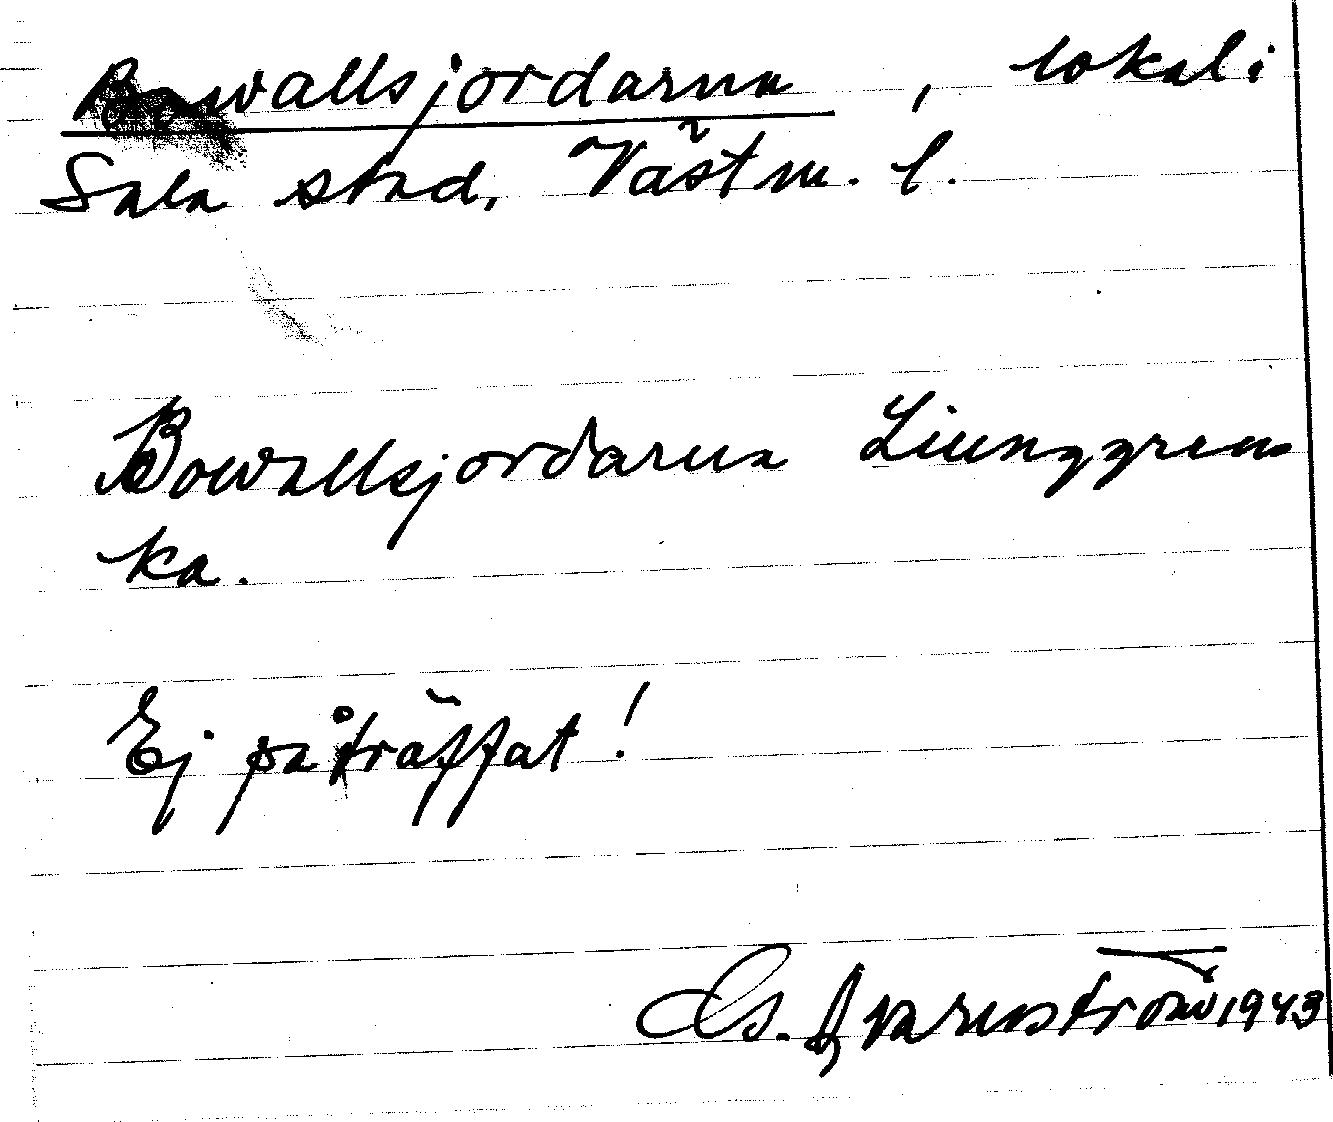 Bowallsjordarna, lokal i
Sala stad, Västm. l.
Bowallsjordarna Liunggrens
ka.
Ej påträffat!
1943